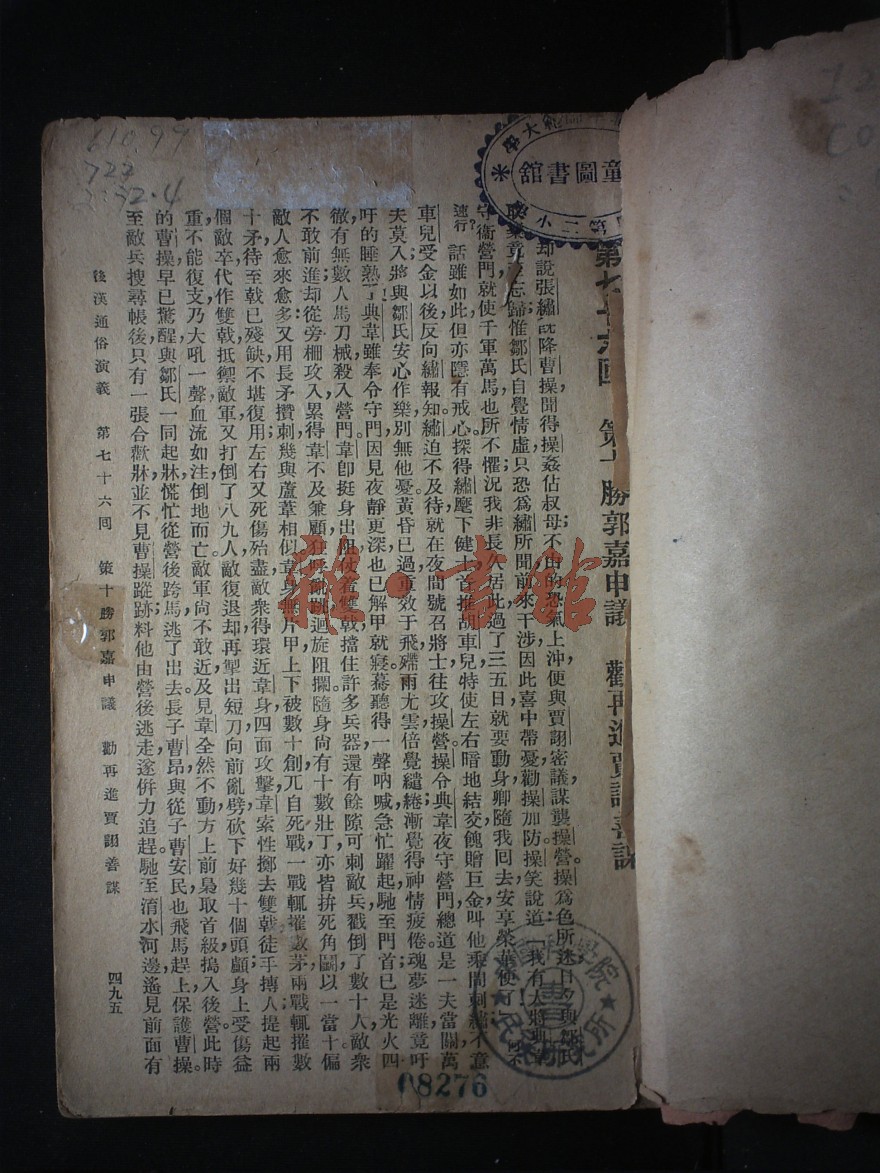 第七十六回　策十勝郭嘉申議　勸再進賈詡善謀
却說張繡旣降曹操聞得操姦佔叔母不由的恐氣上沖便與賈詡密議謀襲操營操爲色所迷日夕與鄒氏
取樂竟忘歸惟鄒氏自覺情虛只恐爲繡所聞前來干涉因此喜中帶憂勸操加防操笑說道「我有大將典
守衞營門就使千軍萬馬也所不懼況我非長久居此過了三五日就要動身卿隨我回去安享榮華便了」
速行話雖如此但亦隱有戒心探得繡麾下健首推胡車兒特使左右暗地結交餽贈巨金叫他乘間刺繡不意
車兒受金以後反向繡報知繡迫不及待就在夜間號召將士往攻操營操令典韋夜守營門總道是一夫當關萬
夫莫入將與鄒氏安心作樂別無他憂黃昏已過重效于飛殢雨尤雲倍覺繾綣漸覺得神情疲倦魂夢迷離竟吁
吁的睡熟了典韋雖奉令守門因見夜靜更深也已解甲就寢驀聽得一聲吶喊急忙躍起馳至門首已是光火四
徹有無數人馬刀械殺入營門韋卽挺身出阻使着雙戟擋住許多兵器還有餘隙可刺敵兵戳倒了數十人敵衆
不敢前進却從旁柵攻入累得韋不及兼顧狂呼亂跳迴旋阻攔隨身尙有十數壯丁亦皆拚死角鬬以一當十偏
敵人愈來愈多又用長矛攢刺幾與蘆葦相似韋身無片甲上下被數十創兀自死戰一戰輒摧數茅兩戰輒摧數
十矛待至戟已殘缺不堪復用左右又死傷殆盡敵衆得環近韋身四面攻擊韋索性擲去雙戟徒手搏人提起兩
個敵卒代作雙戟抵禦敵軍又打倒了八九人敵復退却再掣出短刀向前亂劈砍下好幾十個頭顱身上受傷益
重不能復支乃大吼一聲血流如注倒地而亡敵軍尙不敢近及見韋全然不動方上前梟取首級搗入後營此時
的曹操早已驚醒與鄒氏一同起牀慌忙從營後跨馬逃了出去長子曹昂與從子曹安民也飛馬趕上保護曹操
至敵兵搜尋帳後只有一張合歡牀並不見曹操蹤跡料他由營後逃走遂併力追趕馳至淯水河邊遙見前面有
後漢通俗演義　第七十六回　策十勝郭嘉申議　勸再進賈詡善謀　四九五
童圖書館
08276
雅·書館